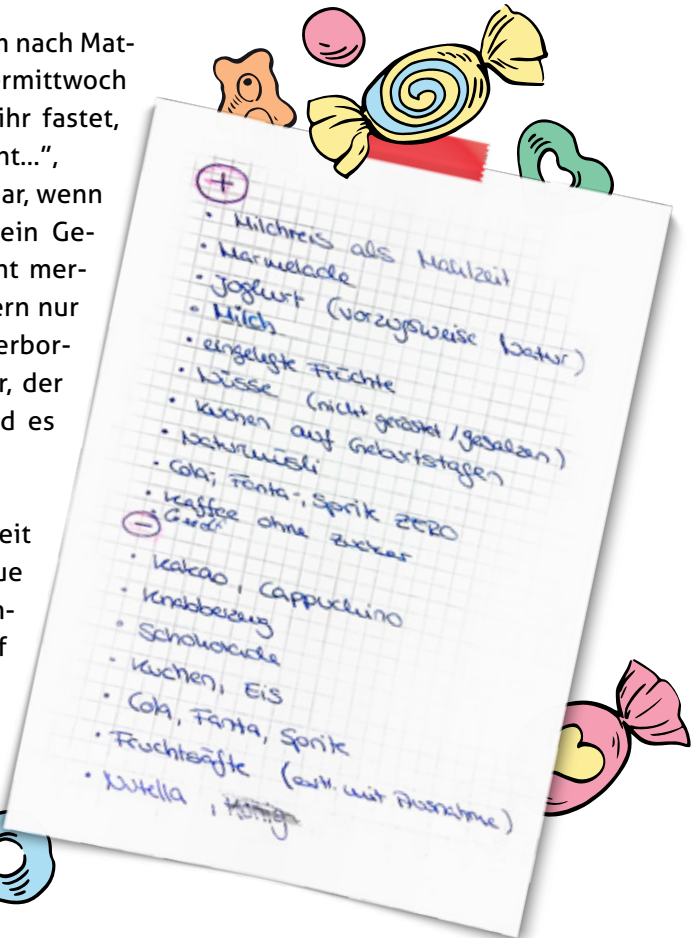 nach Mat-
ermittwoch
ihr fastet,
nt...”,
ar, wenn
ein Ge-
nt mer-
ern nur
erbor-
r, der
d es
eit
ue
n-
f
+
• Milchreis als Mahlzeit
• Marmelade
• Joghurt (vorzugsweise Natur)
• Milch
• eingelegte Früchte
• Nüsse (nicht geröstet / gesalzen)
• Kuchen auf Geburtstagen
• Naturmüsli
• Cola-, Fanta-, Sprite ZERO
• Kaffee ohne Zucker
-
• Kakao, Cappuchino
• Knabberzeug
• Schokolade
• Kuchen, Eis
• Cola, Fanta, Sprite
• Fruchtsäfte (evtl. mit Ausnahme)
• Nutella, Honig